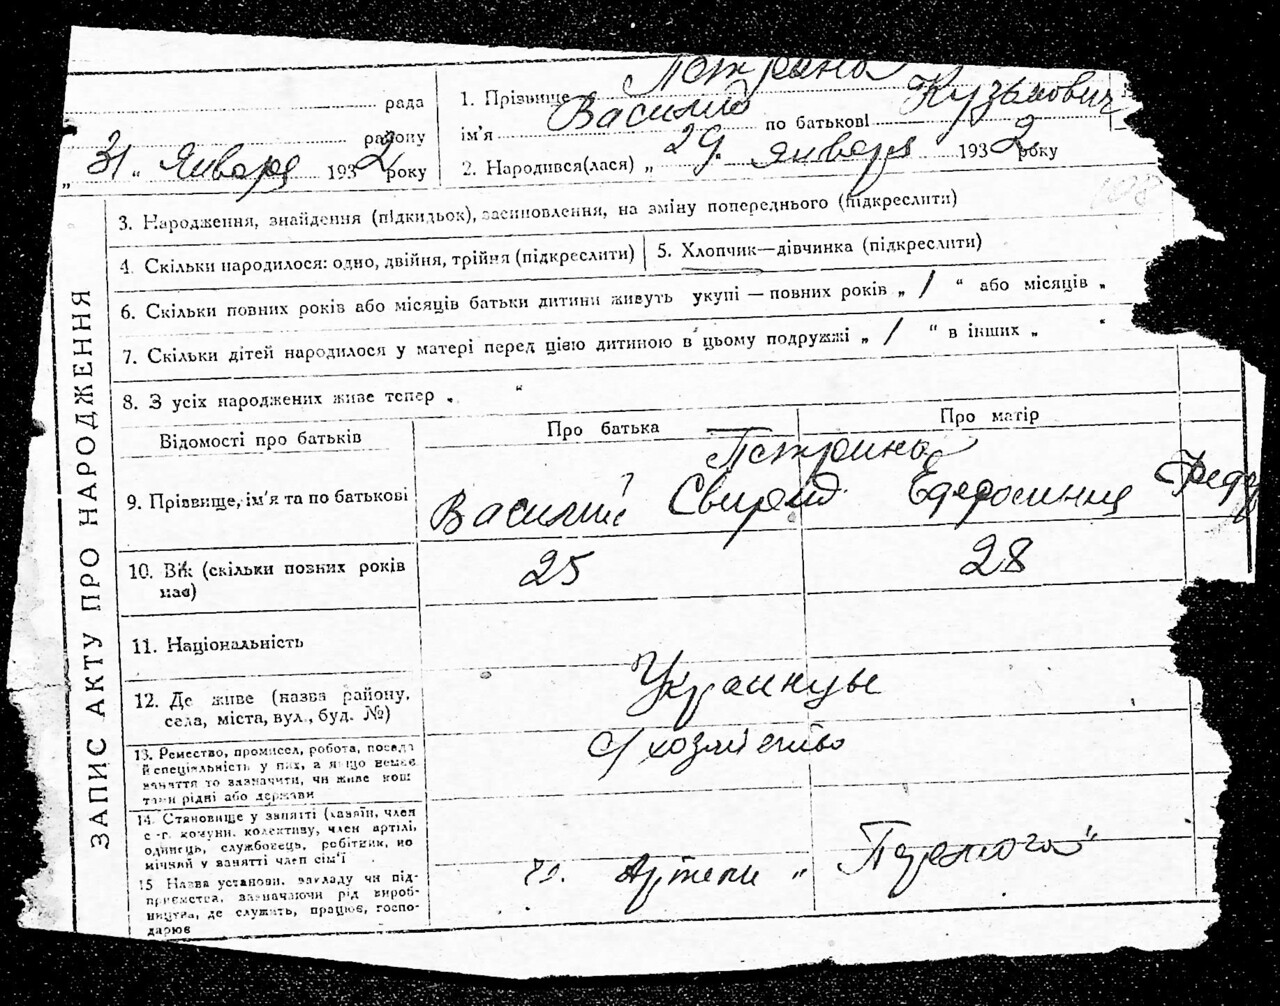 рада
району
„ 31 “ Января 1932 року
1. Прізвище Петрина
ім'я Василид по батькові Кузьмович
2. Народився(лася) „ 29. января 1932 року
108
ЗАПИС АКТУ ПРО НАРОДЖЕННЯ
3. Народження, знайдення (підкидьок), засиновлення, на зміну попереднього (підкреслити)
4. Скільки народилося: одно, двійня, трійня (підкреслити)
5. Хлопчик—дівчинка (підкреслити)
6. Скільки повних років або місяців батьки дитини живуть укупі — повних років „ / “ або місяців „
7. Скільки дітей народилося у матері перед цією дитиною в цьому подружжі „ / “ в інших „ “
8. З усіх народжених живе тепер „ “
Відомості про батьків
Про батька
Про матір
Петрина
9. Прізвище, ім'я та по батькові
Василий Свирид Ефросиния Федор
10. Вік (скільки повних років має)
25
28
11. Національність
Украинцы
12. Де живе (назва району,
села, міста, вул., буд. №)
с/хозяйство
13. Ремество, промисел, робота, посада
й спеціяльність у них, а якщо немає
заняття то зазначити, чи живе кош
тами рідні або держави
14. Становище у занятті (хазяїн, член
с-г. комуни, колективу, член артілі,
одинець, службовець, робітник, по
мічний у занятті член сім'ї
чл. Артели „ Перемога“
15 Назва установи, закладу чи під-
приємства, зазначаючи рід вироб-
ництва, де служить, працює, госпо-
дарює